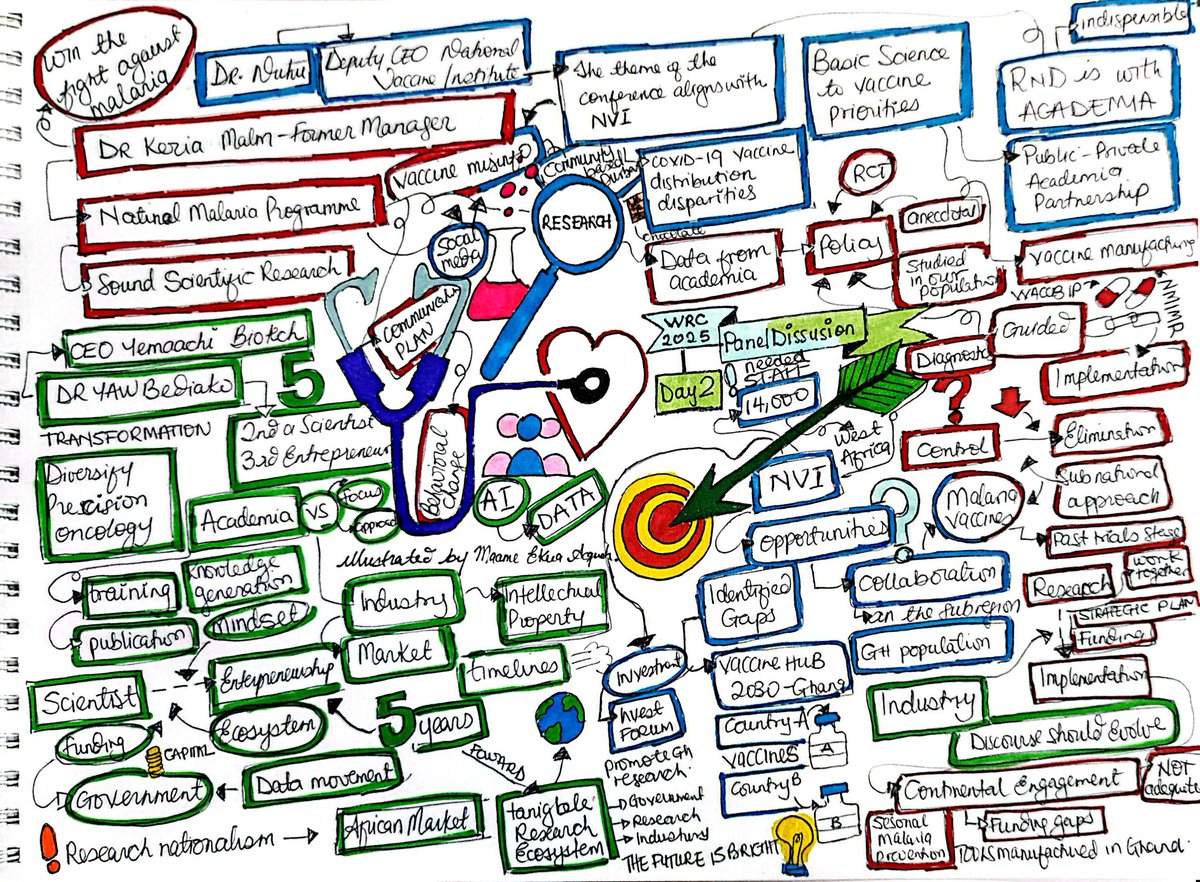 Win the
fight against
malaria
DR. Nutu
Deputy CEO National
Vaccine Institute
The theme of the
conference aligns with
NVI
Basic Science
to vaccine
priorities
indispensible
RND is with
ACADEMIA
DR Keria Malm-Former Manager
Natinal Malaria Programme
Sound Scientific Research
vaccine
Community
based
RESEARCH
Social
media
COMMUNICATION
PLAN
covid-19 vaccine
distribution
disparities
Data from
academia
RCT
anecdotal
Policy
Studied
in our
population
Public-Private
Academia
Partnership
vaccine manufacturing
WACCBIP
NMIMR
Guided
Implementation
CEO Yemaachi Biotech
DR YAW Bediako
5
TRANSFORMATION
2nd a Scientist
3rd Entrepreneur
Diversify
Precision
oncology
Academia
VS
Focus
approach
Behavioral
change
AI
DATA
WRC
2025
Day 2
Panel Dissusion
needed
STAFF
14,000
West
Africa
NVI
Diagnostic
Control
Elimination
Subnational
approach
Malaria
vaccines
Past trials Stage
opportunities
collaboration
in the subregion
GH population
Research
work
together
STRATEGIC PLAN
Funding
Implementation
illustrated by Maame Ekua
training
publication
knowledge
generation
Mindset
Industry
Intellectual
Property
Market
timelines
Scientist
Entrepreneurship
Ecosystem
5 years
FOWARD
Funding
CAPITAL
Government
Data movement
African Market
tanigtable
Research
Ecosystem
Research nationalism
Identified
Gaps
Investment
Invest
FORUM
vaccine HUB
2030-Ghana
Country-A
vaccines
A
country B
B
promote GH
research:
Government
Research
Industury
THE FUTURE IS BRIGHT
Industry
Discourse Should Evolve
Continental Engagement
NOT
adequate
Funding gaps
Sesonal
Malaria
prevention
TOOLS manufactured in Ghana.